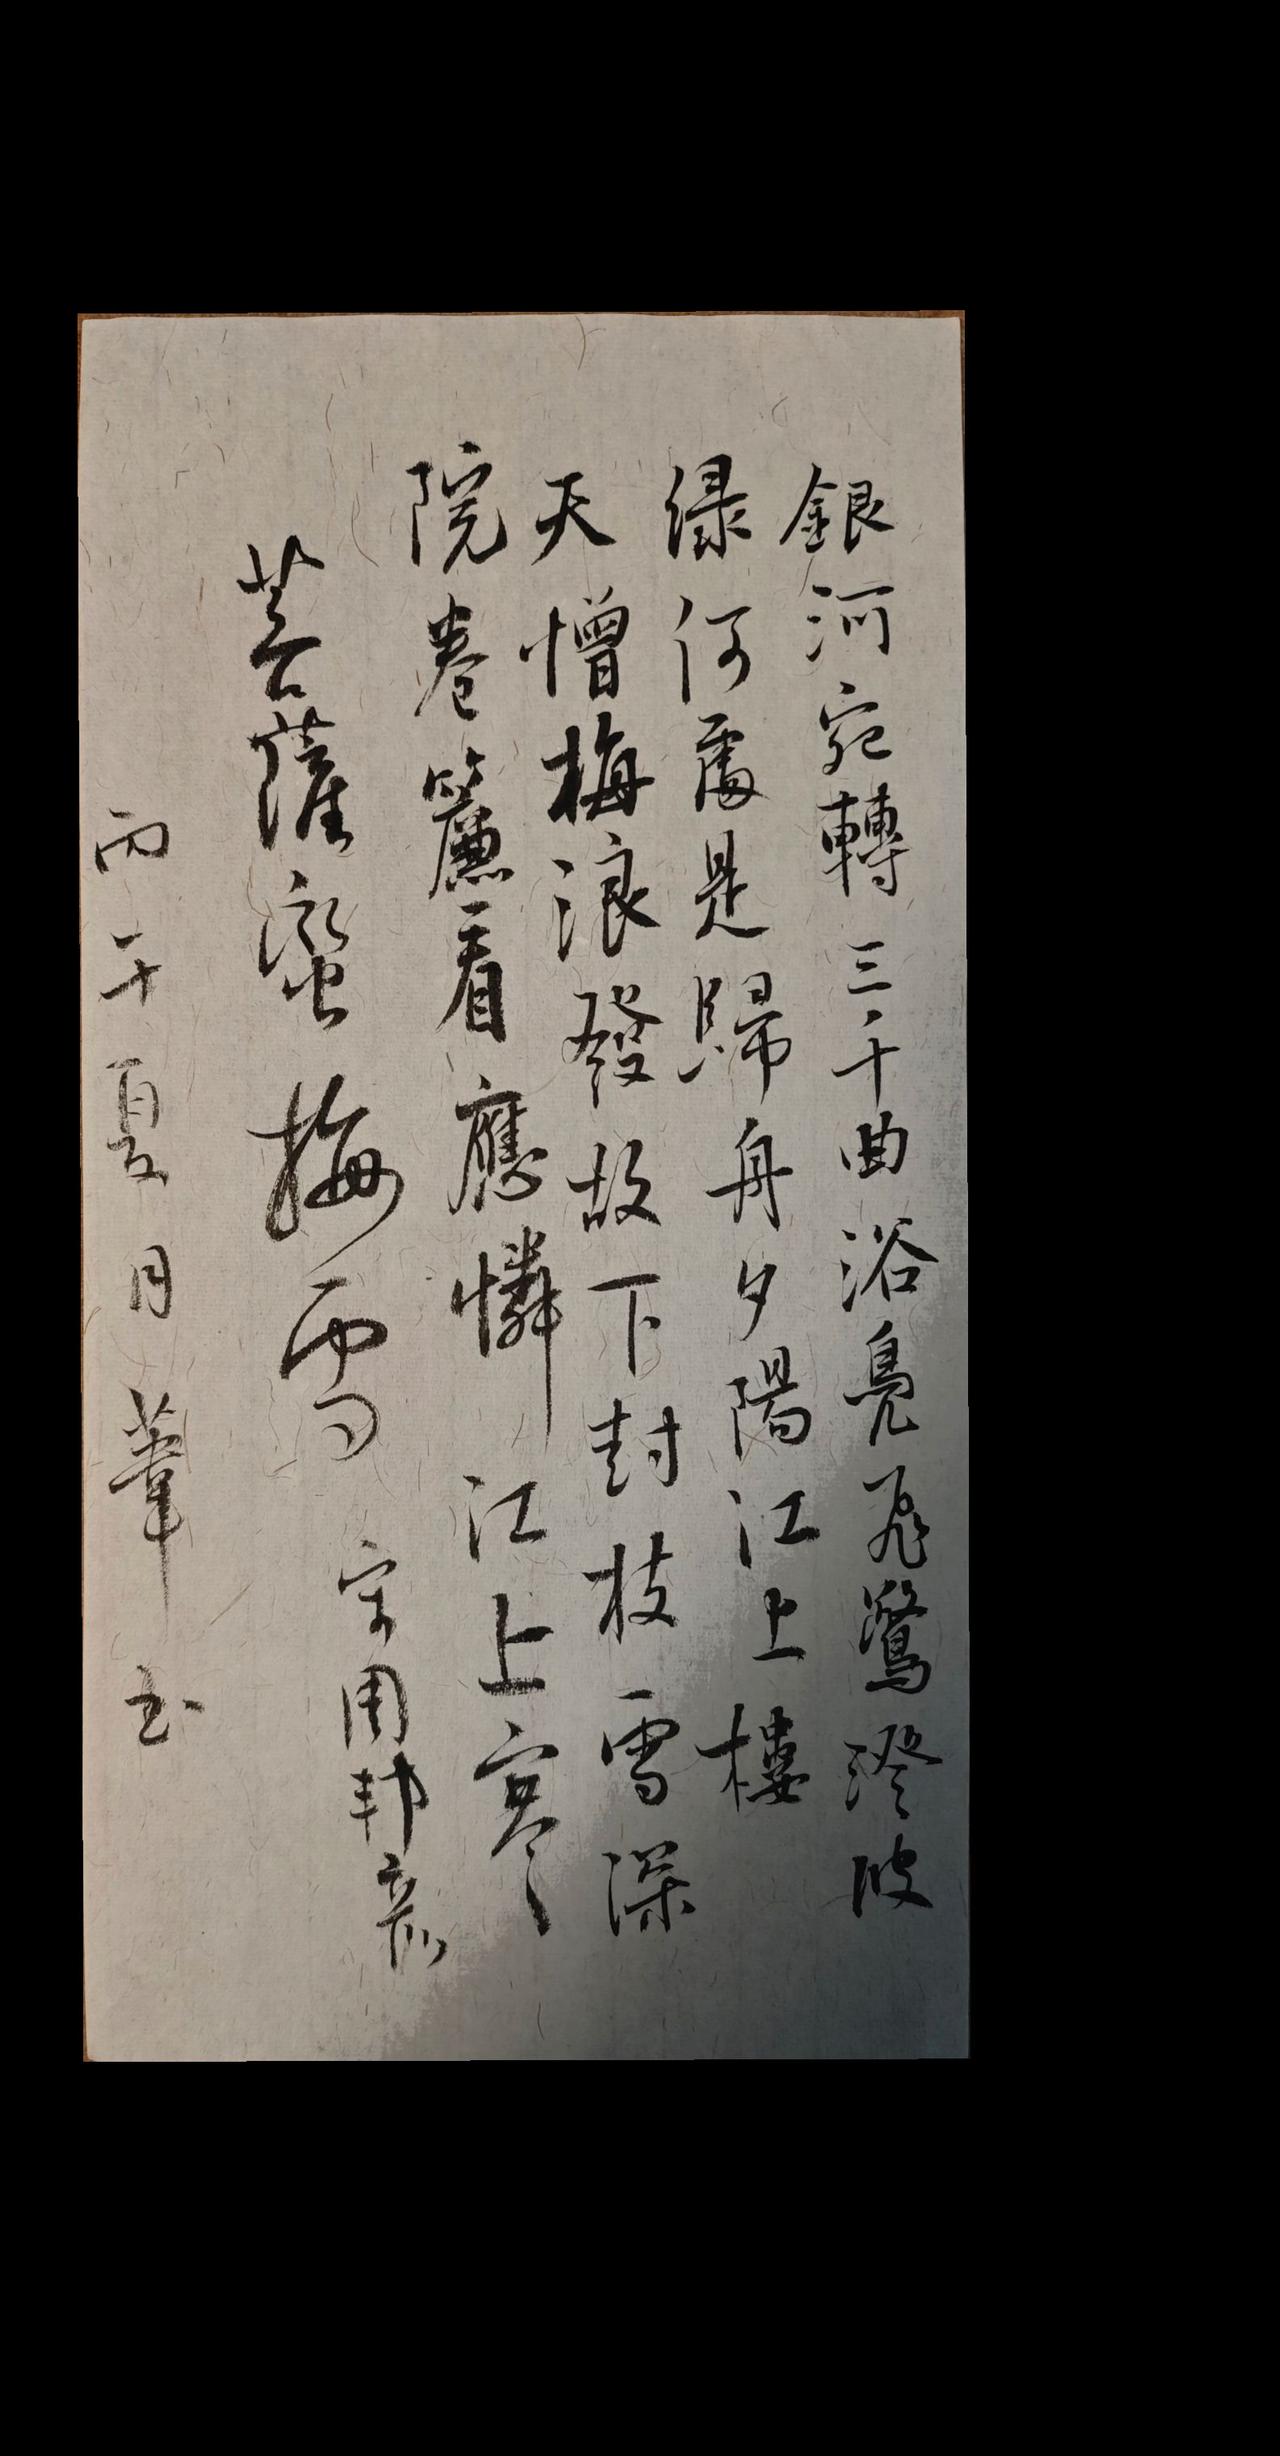 銀河宛轉三千曲浴鳧飛鷺澄波
緑何處是歸舟夕陽江上樓
天憎梅浪發故下封枝雪深
院卷簾看應憐江上寒
菩薩蠻梅雪
宋周邦彦
丙午夏月葦書